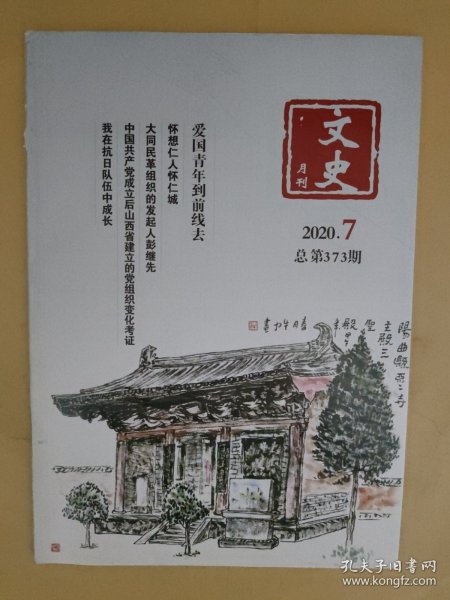 文史
月刊
2020.7
总第373期
爱国青年到前线去
怀想仁人怀仁城
大同民革组织的发起人彭继先
中国共产党成立后山西省建立的党组织变化考证
我在抗日队伍中成长
主殿三
孔夫子旧书网
www.kongfz.com